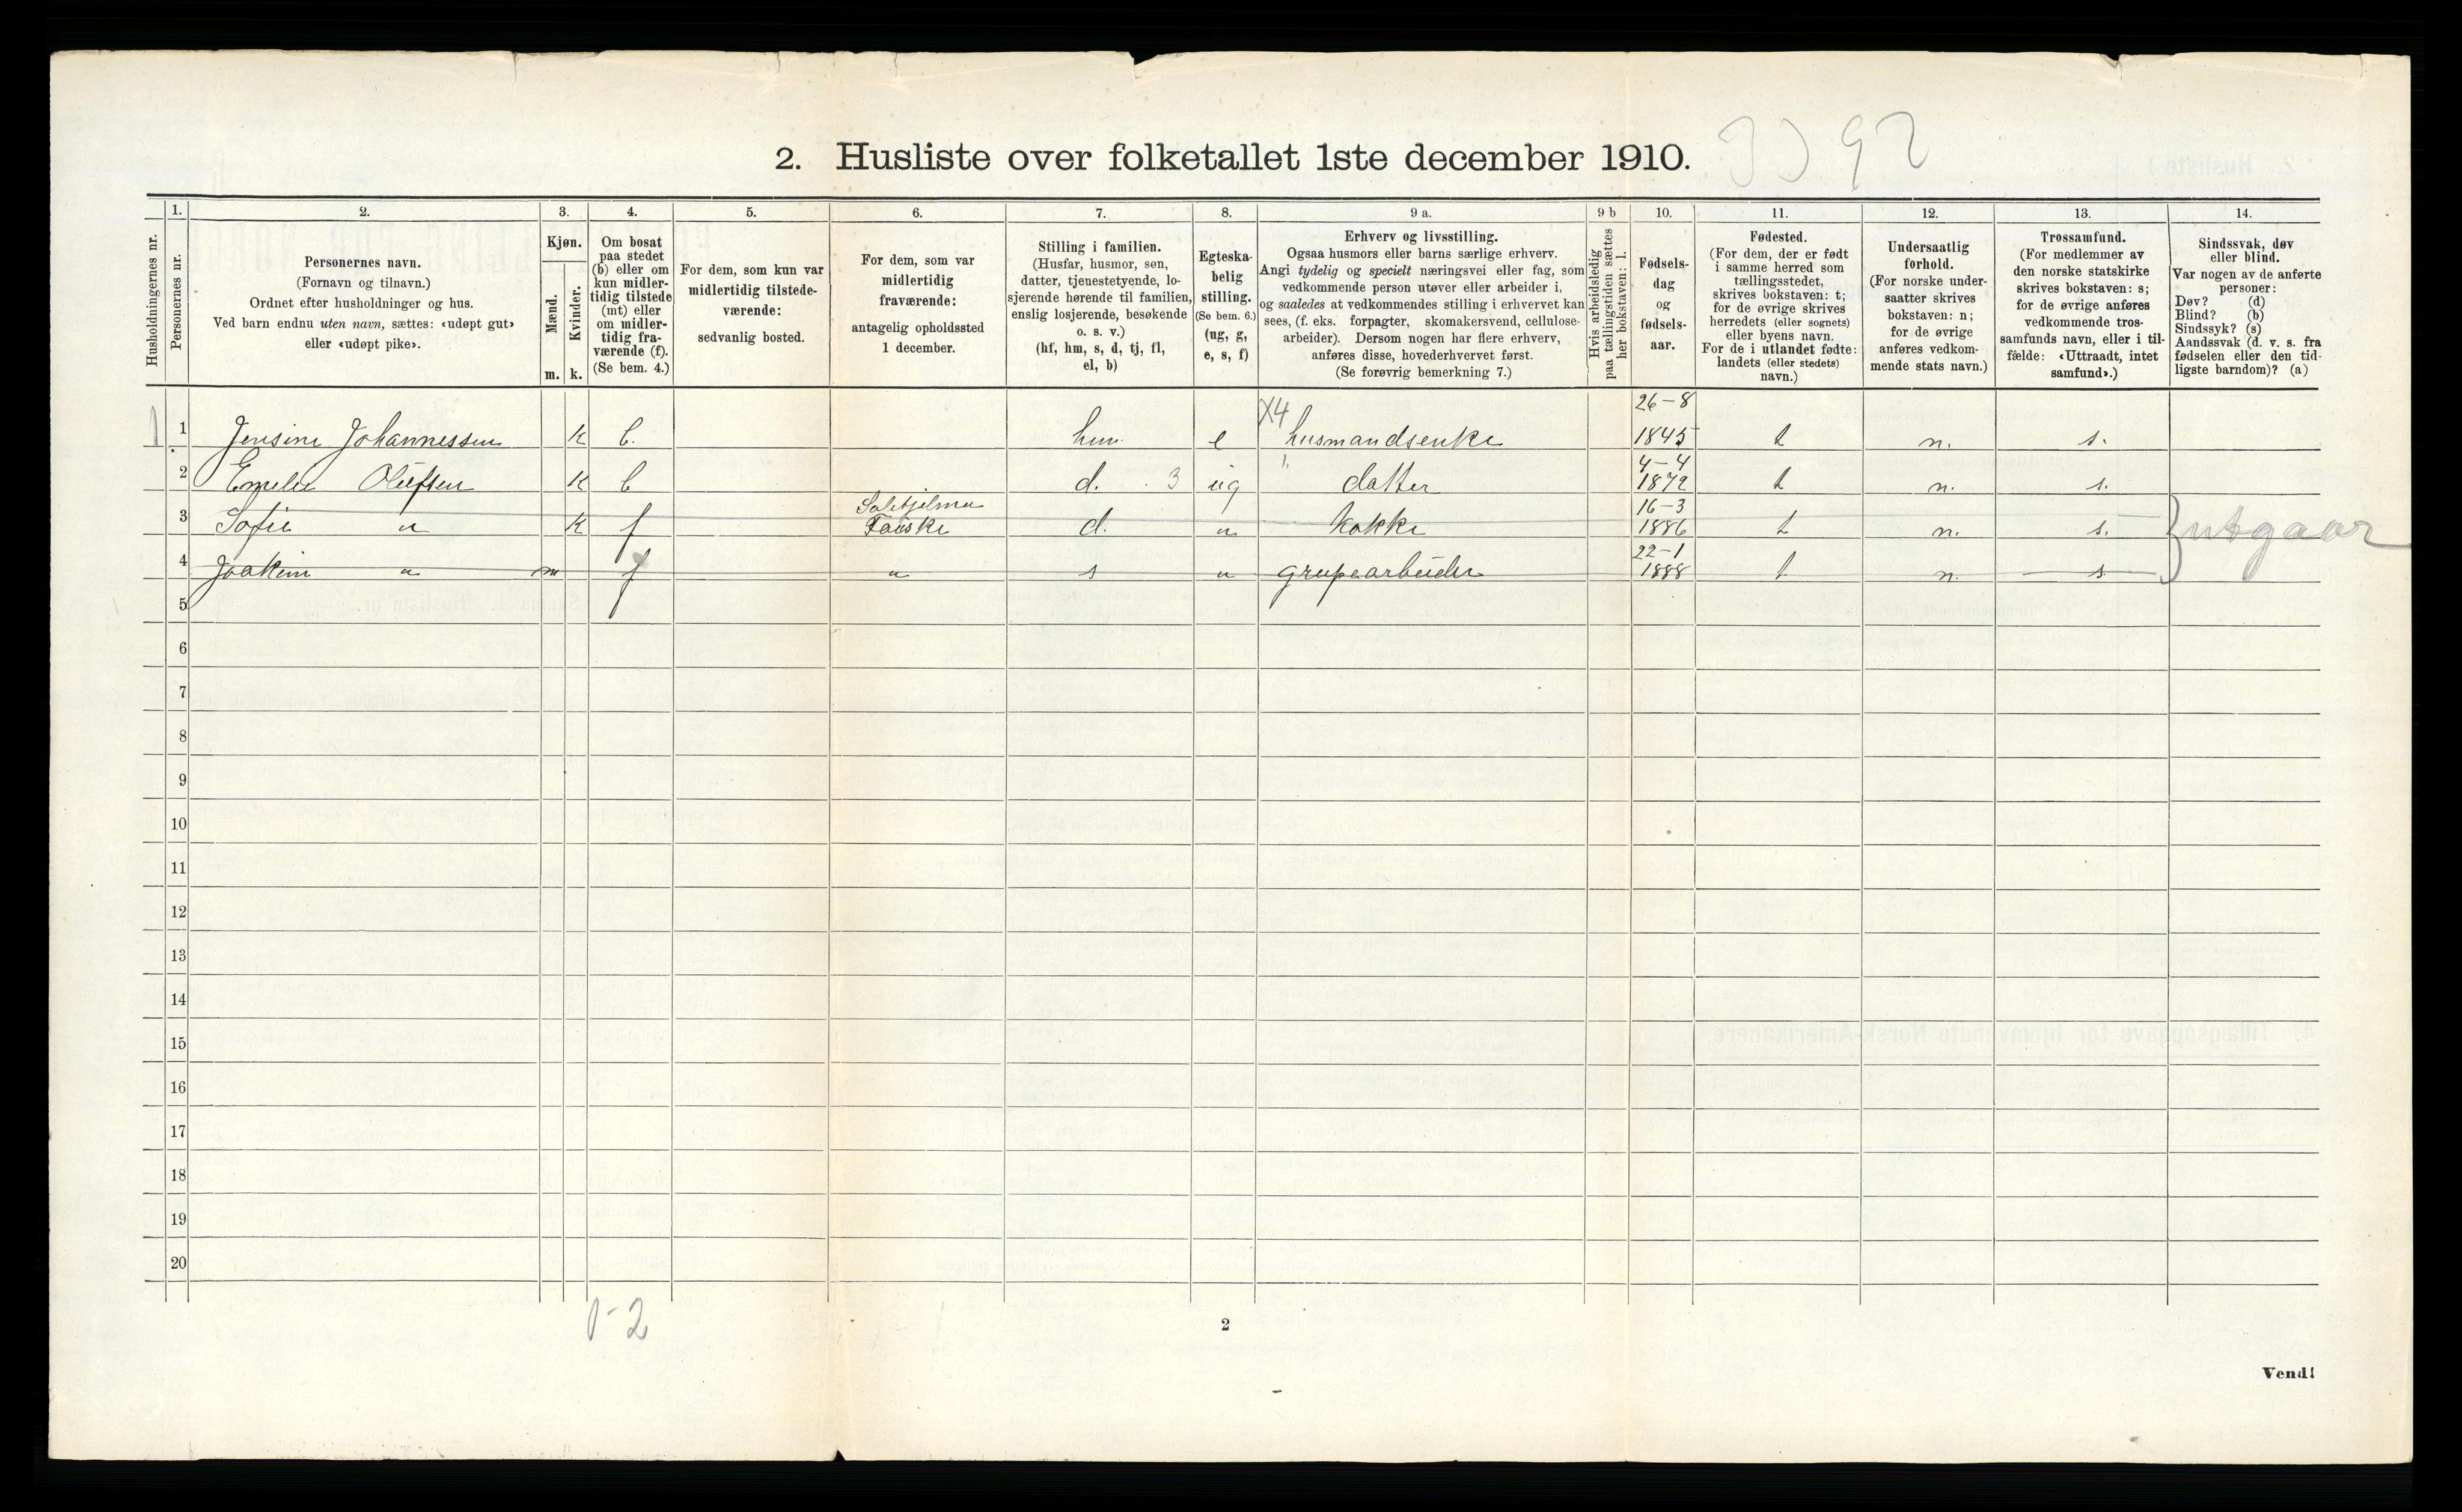 2. Husliste over folketallet 1ste december 1910.
Husholdningernes nr.
1. Personernes nr.
2. Personernes navn.
(Fornavn og tilnavn.)
Ordnet efter husholdninger og hus.
Ved barn endnu uten navn, sættes: «udøpt gut»
eller «udøpt pike».
3. Kjøn.
Mænd. m.
Kvinder. k.
4. Om bosat
paa stedet
(b) eller om
kun midler-
tidig tilstede
(mt) eller
om midler-
tidig fra-
værende (f).
(Se bem. 4.)
5. For dem, som kun var
midlertidig tilstede-
værende:
sedvanlig bosted.
6. For dem, som var
midlertidig
fraværende:
antagelig opholdssted
1 december.
7. Stilling i familien.
(Husfar, husmor, søn,
datter, tjenestetyende, lo-
sjerende hørende til familien,
enslig losjerende, besøkende
o. s. v.)
(hf, hm, s, d, tj, fl,
el, b)
8. Egteska-
belig
stilling.
(Se bem. 6.)
(ug, g,
e, s, f)
9 a. Erhverv og livsstilling.
Ogsaa husmors eller barns særlige erhverv.
Angi tydelig og specielt næringsvei eller fag, som
vedkommende person utøver eller arbeider i,
og saaledes at vedkommendes stilling i erhvervet kan
sees, (f. eks. forpagter, skomakersvend, cellulose-
arbeider). Dersom nogen har flere erhverv,
anføres disse, hovederhvervet først.
(Se forøvrig bemerkning 7.)
9 b Hvis arbeidsledig
paa tællingstiden sættes
her bokstaven: l.
10. Fødsels-
dag
og
fødsels-
aar.
11. Fødested.
(For dem, der er født
i samme herred som
tællingsstedet,
skrives bokstaven: t;
for de øvrige skrives
herredets (eller sognets)
eller byens navn.
For de i utlandet fødte:
landets (eller stedets)
navn.)
12. Undersaatlig
forhold.
(For norske under-
saatter skrives
bokstaven: n;
for de øvrige
anføres vedkom-
mende stats navn.)
13. Trossamfund.
(For medlemmer av
den norske statskirke
skrives bokstaven: s;
for de øvrige anføres
vedkommende tros-
samfunds navn, eller i til-
fælde: «Uttraadt, intet
samfund».)
14. Sindssvak, døv
eller blind.
Var nogen av de anførte
personer:
Døv? (d)
Blind? (b)
Sindssyk? (s)
Aandssvak (d. v. s. fra
fødselen eller den tid-
ligste barndom)? (a)
X4 26-8
1 1 Jensine Johannessen K b. hm. e husmandsenke 1845 t n. s.
4-4
2 Emelie Olufsen K b d. 3 ug " datter 1872 t n. s.
Sulitjelma 16-3
3 Sofie " K f Fauske d. " kokke 1886 t n. s. } utgaar
22-1
4 Joakim " m f " s " grupearbeider 1888 t n. s
5
6
7
8
9
10
11
12
13
14
15
16
17
18
19
20
0-2
2
Vend!